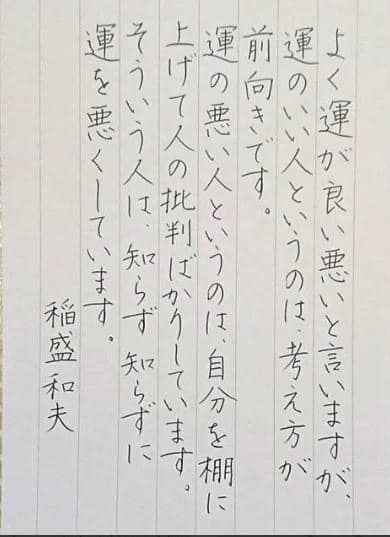 よく運が良い悪いと言いますが、
運のいい人というのは、考え方が
前向きです。
運の悪い人というのは、自分を棚に
上げて人の批判ばかりしています。
そういう人は、知らず知らずに
運を悪くしています。
稲盛和夫